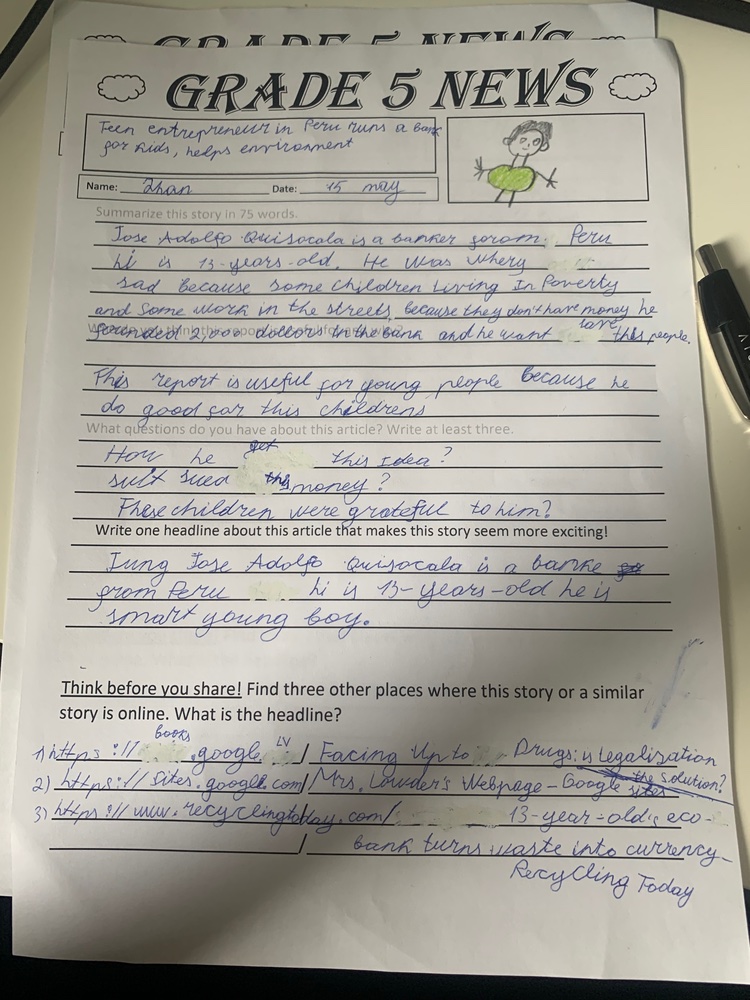 GRADE 5 NEWS
GRADE 5 NEWS
Teen entrepreneur in Peru runs a bank
for kids, helps environment
Name: Zhan Date: 15 may
Summarize this story in 75 words.
Jose Adolfo Quisocala is a banker from Peru
hi is 13-years-old. He was whery
sad because some children Living In Poverty
and some work in the streets, because they don't have money he
founded 2,000 dollors in the bank and he want save this people.
This report is useful for young people because he
do good for this childrens
What questions do you have about this article? Write at least three.
How he get this Idea?
this money?
These children were grateful to him?
Write one headline about this article that makes this story seem more exciting!
Jung Jose Adolfo Quisocala is a banke
from Peru hi is 13-years-old he is
smart young boy.
Think before you share! Find three other places where this story or a similar
story is online. What is the headline?
1) https://books.google.LV / Facing Up to Drugs: is Legalization
the solution?
2) https://sites.google.com/ Mrs. Lowder's Webpage - Google sites
3) https://www.recyclingtoday.com/ 13-year-old's eco-
bank turns waste into currency-
Recycling Today